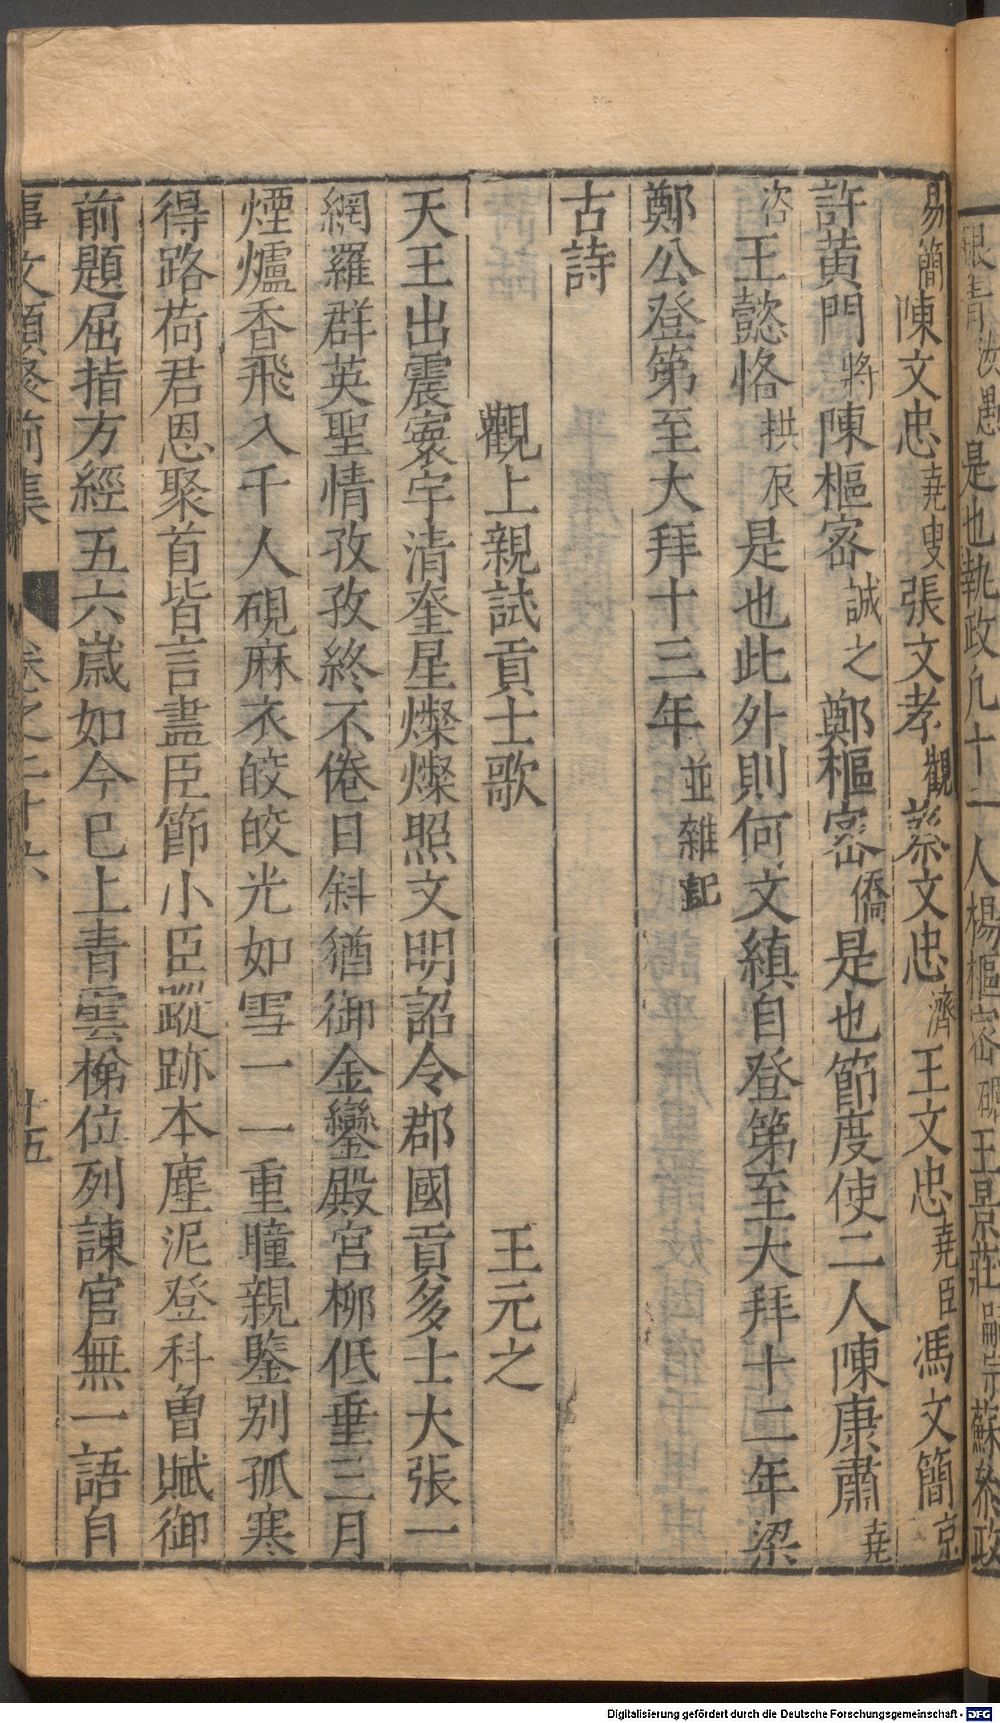 銀青汝愚是也執政凡十一人楊樞密礪王景莊嗣宗蘇參政
易簡陳文忠堯叟張文孝觀蔡文忠濟王文忠堯臣馮文簡京
許黃門將陳樞密誠之鄭樞密僑是也節度使二人陳康肅堯
咨王懿恪拱辰是也此外則何文縝自登第至大拜十二年梁
鄭公登第至大拜十三年並雜記
古詩
觀上親試貢士歌 王元之
天王出震寰宇清奎星燦燦照文明詔令郡國貢多士大張一
網羅群英聖情孜孜終不倦日斜猶御金鑾殿宮柳低垂三月
煙爐香飛入千人硯麻衣皎皎光如雪一一重瞳親鑒別孤寒
得路荷君恩聚首皆言盡臣節小臣蹤跡本塵泥登科曾賦御
前題屈指方經五六歲如今已上青雲梯位列諫官無一語自
事文類聚前集 卷之二十六 十五
Digitalisierung gefördert durch die Deutsche Forschungsgemeinschaft - DFG